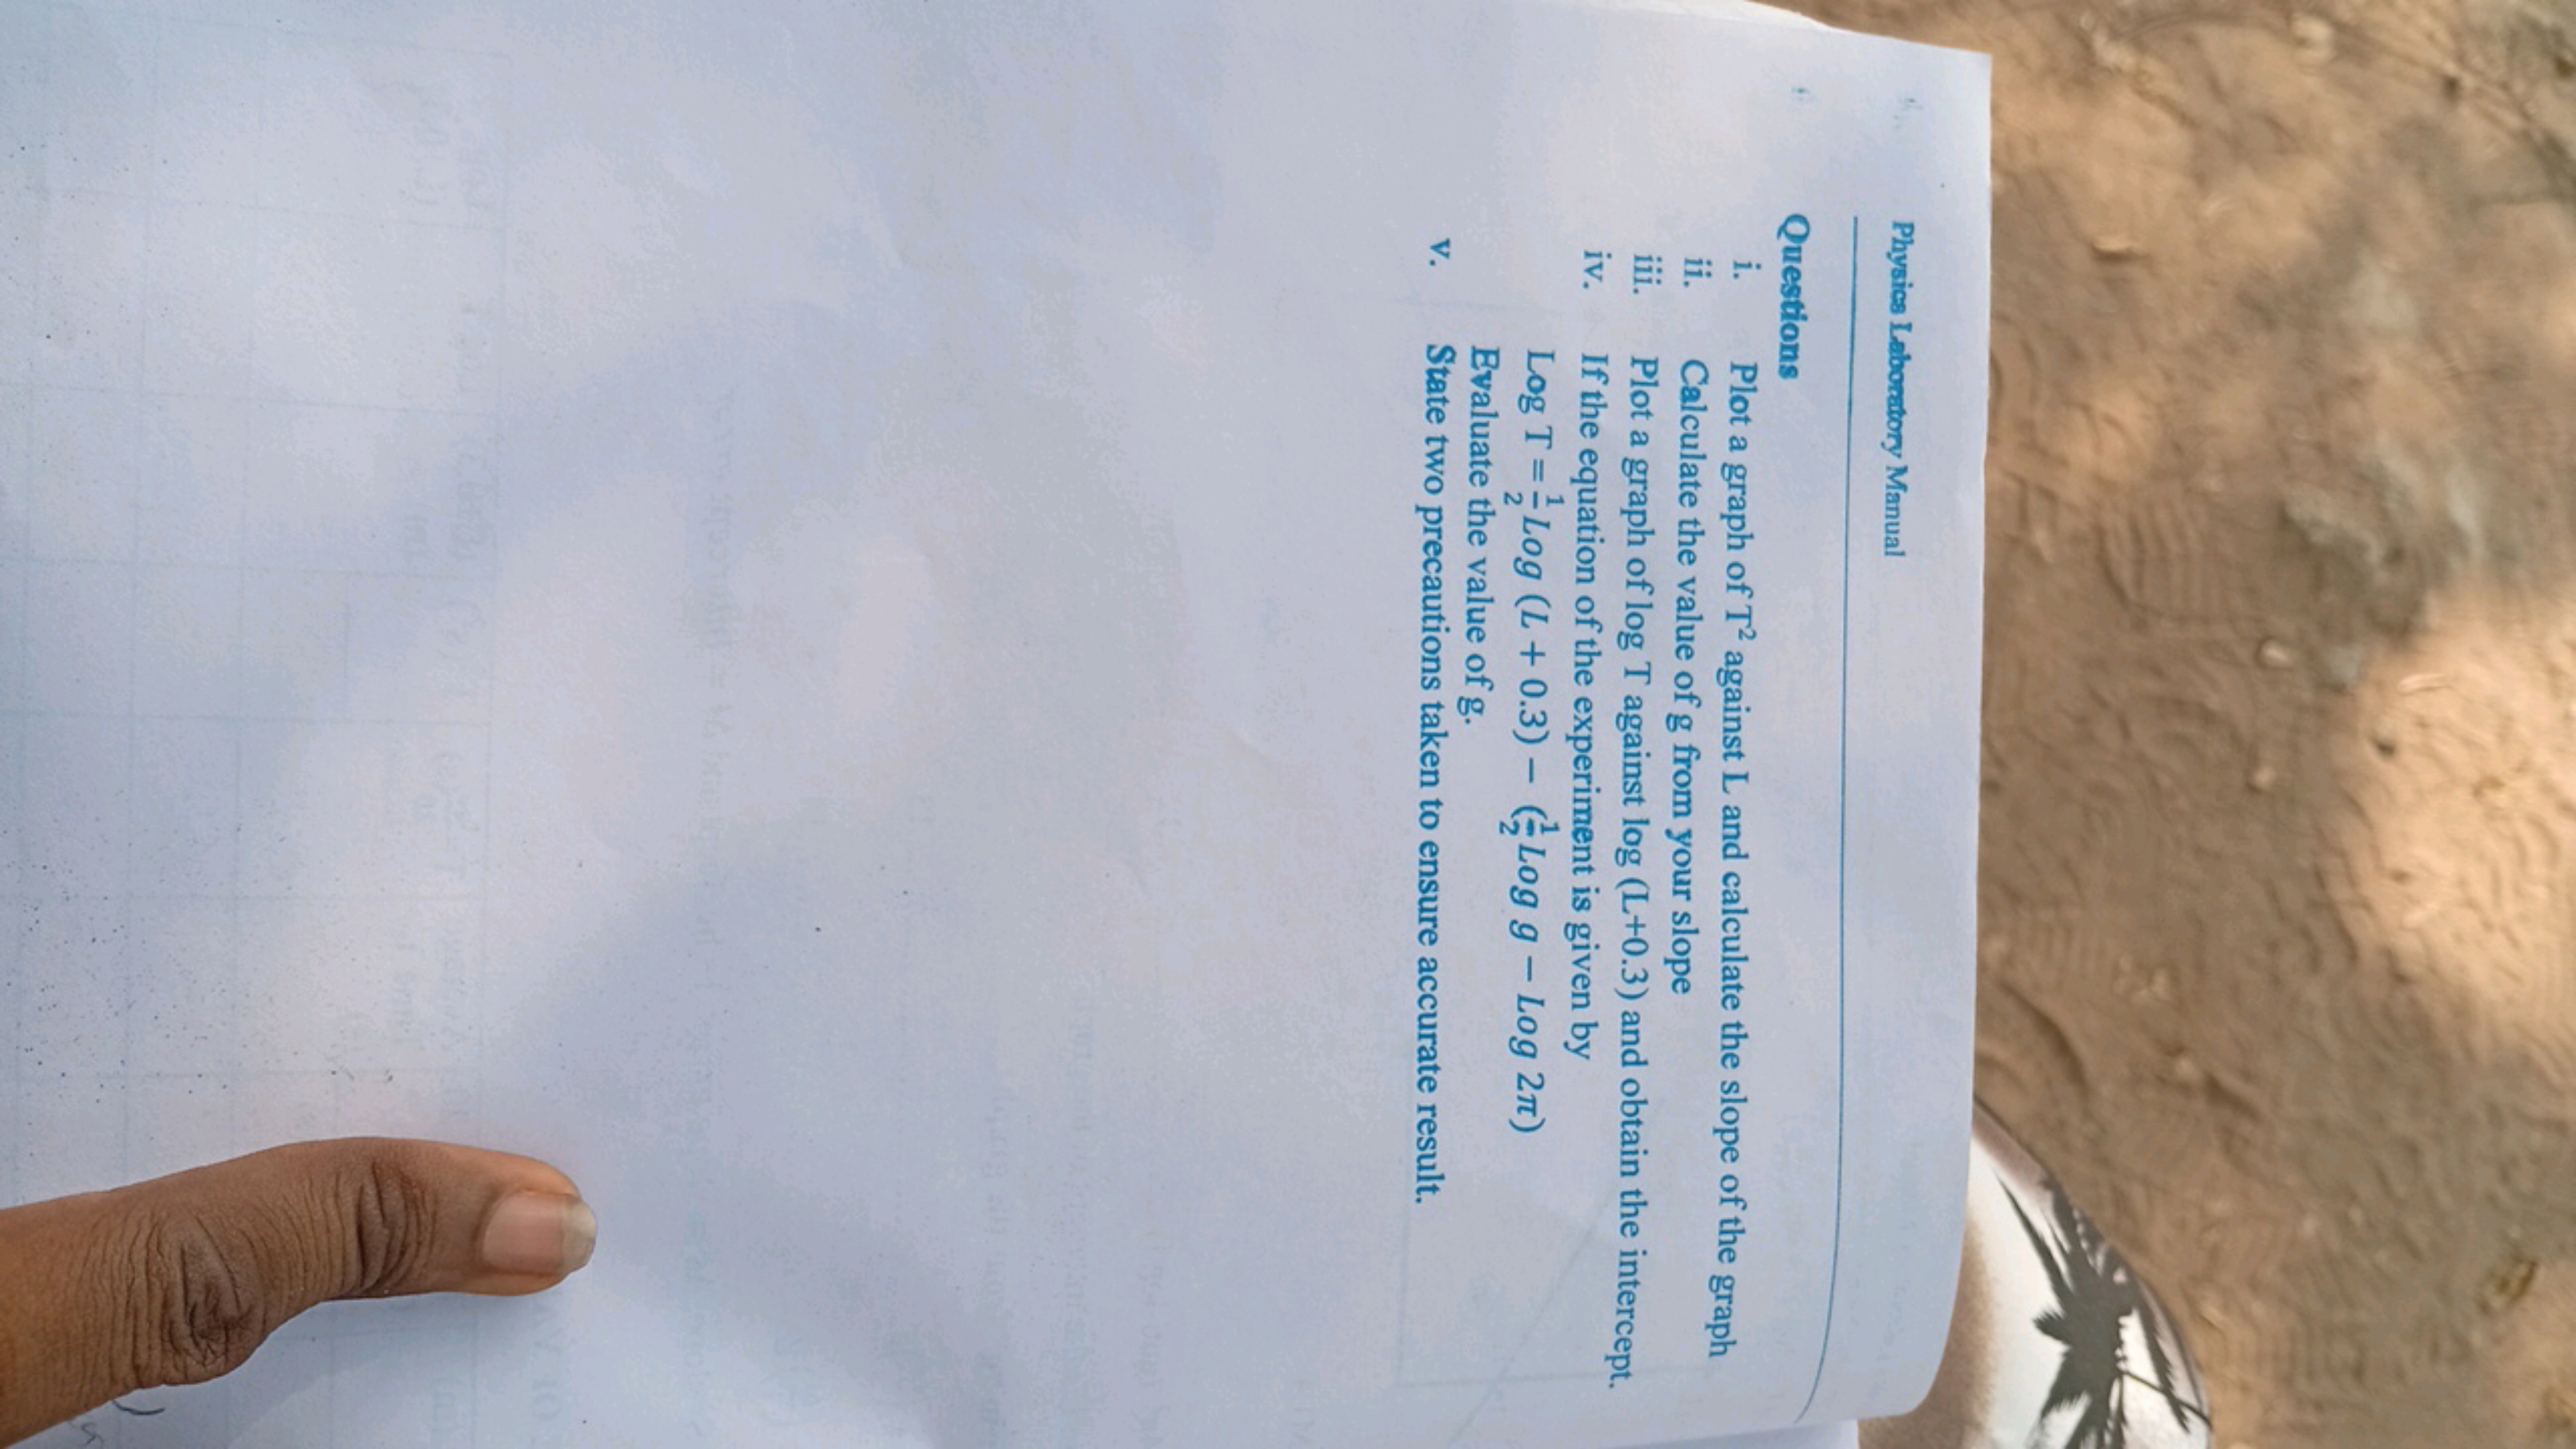 Physics Laboratory Manual
Questions
i. Plot a graph of T² against L and calculate the slope of the graph
ii. Calculate the value of g from your slope
iii. Plot a graph of log T against log (L+0.3) and obtain the intercept.
iv. If the equation of the experiment is given by
Log T = 1/2 Log (L + 0.3) − (1/2 Log g − Log 2π)
Evaluate the value of g.
v. State two precautions taken to ensure accurate result.